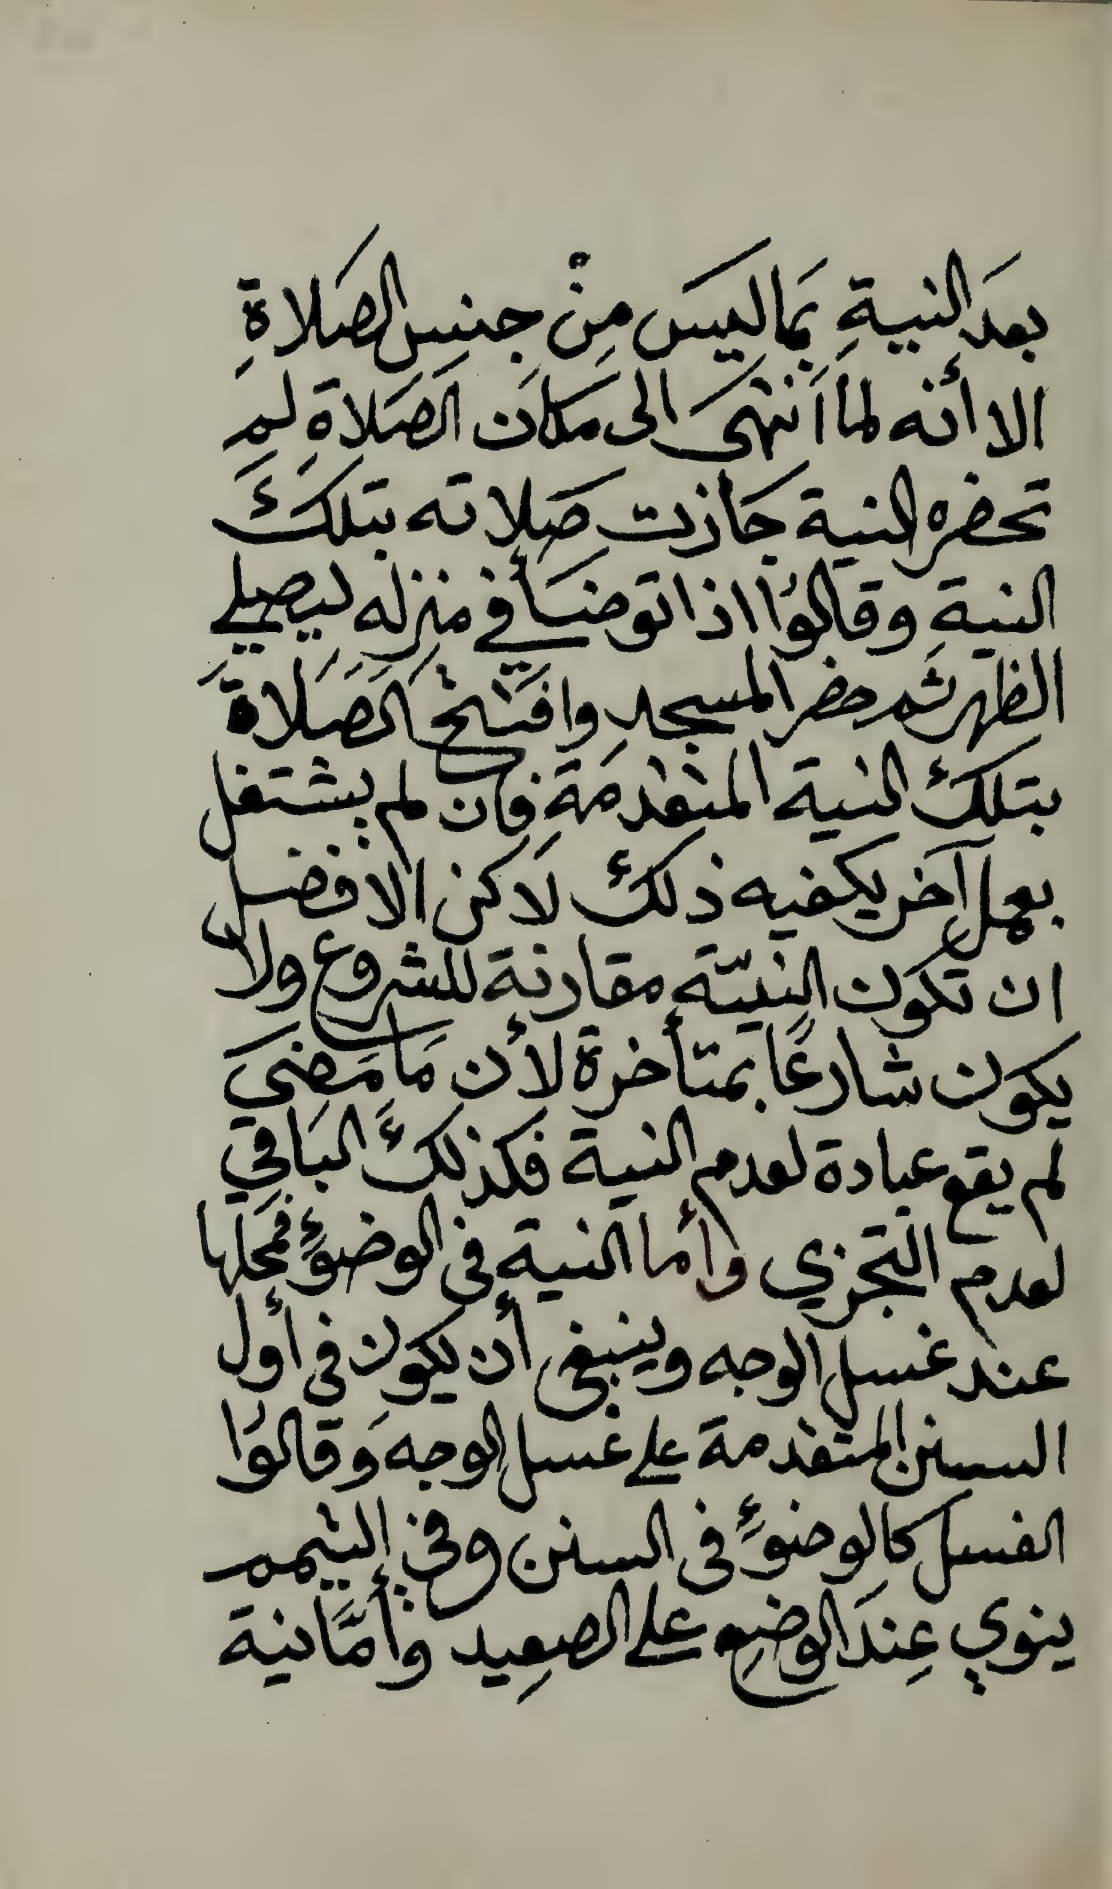 بعدَ النيةِ بمَا ليسَ مِنْ جنسِ الصَلاةِ
الا أنه لما اَنتهىَ الى مكاَن الصَلاةِ لم
تحضره النية جَازت صَلاته بتلكَ
النية وقالوُا اذا توضأَ في منزله ليصلي
الظهر ثم حضر المسجد وافتتحَ الصَلاةَ
بتلكَ النية المتقدمَةِ فان لم يشتغل
بعمل آخر يكفيه ذلك لَاكن الافضل
ان تكون النيّة مقارنة للشروع ولا
يكون شارعًا بمتأخرة لأن مَا مَضىَ
لم يقع عبادة لعدم النية فكذلكَ البَاقي
لعدم التجزي وأما النية في الوضوءِ فمحَلها
عند غسل الوجه وينبغى أن يكون في أول
السنن المتقدمة على غسل الوجه وَقالوُا
الغسل كالوضوءِ في السنن وفي التيمم
ينوي عِندَ الوضعِ على الصعِيد وأمَّا نية